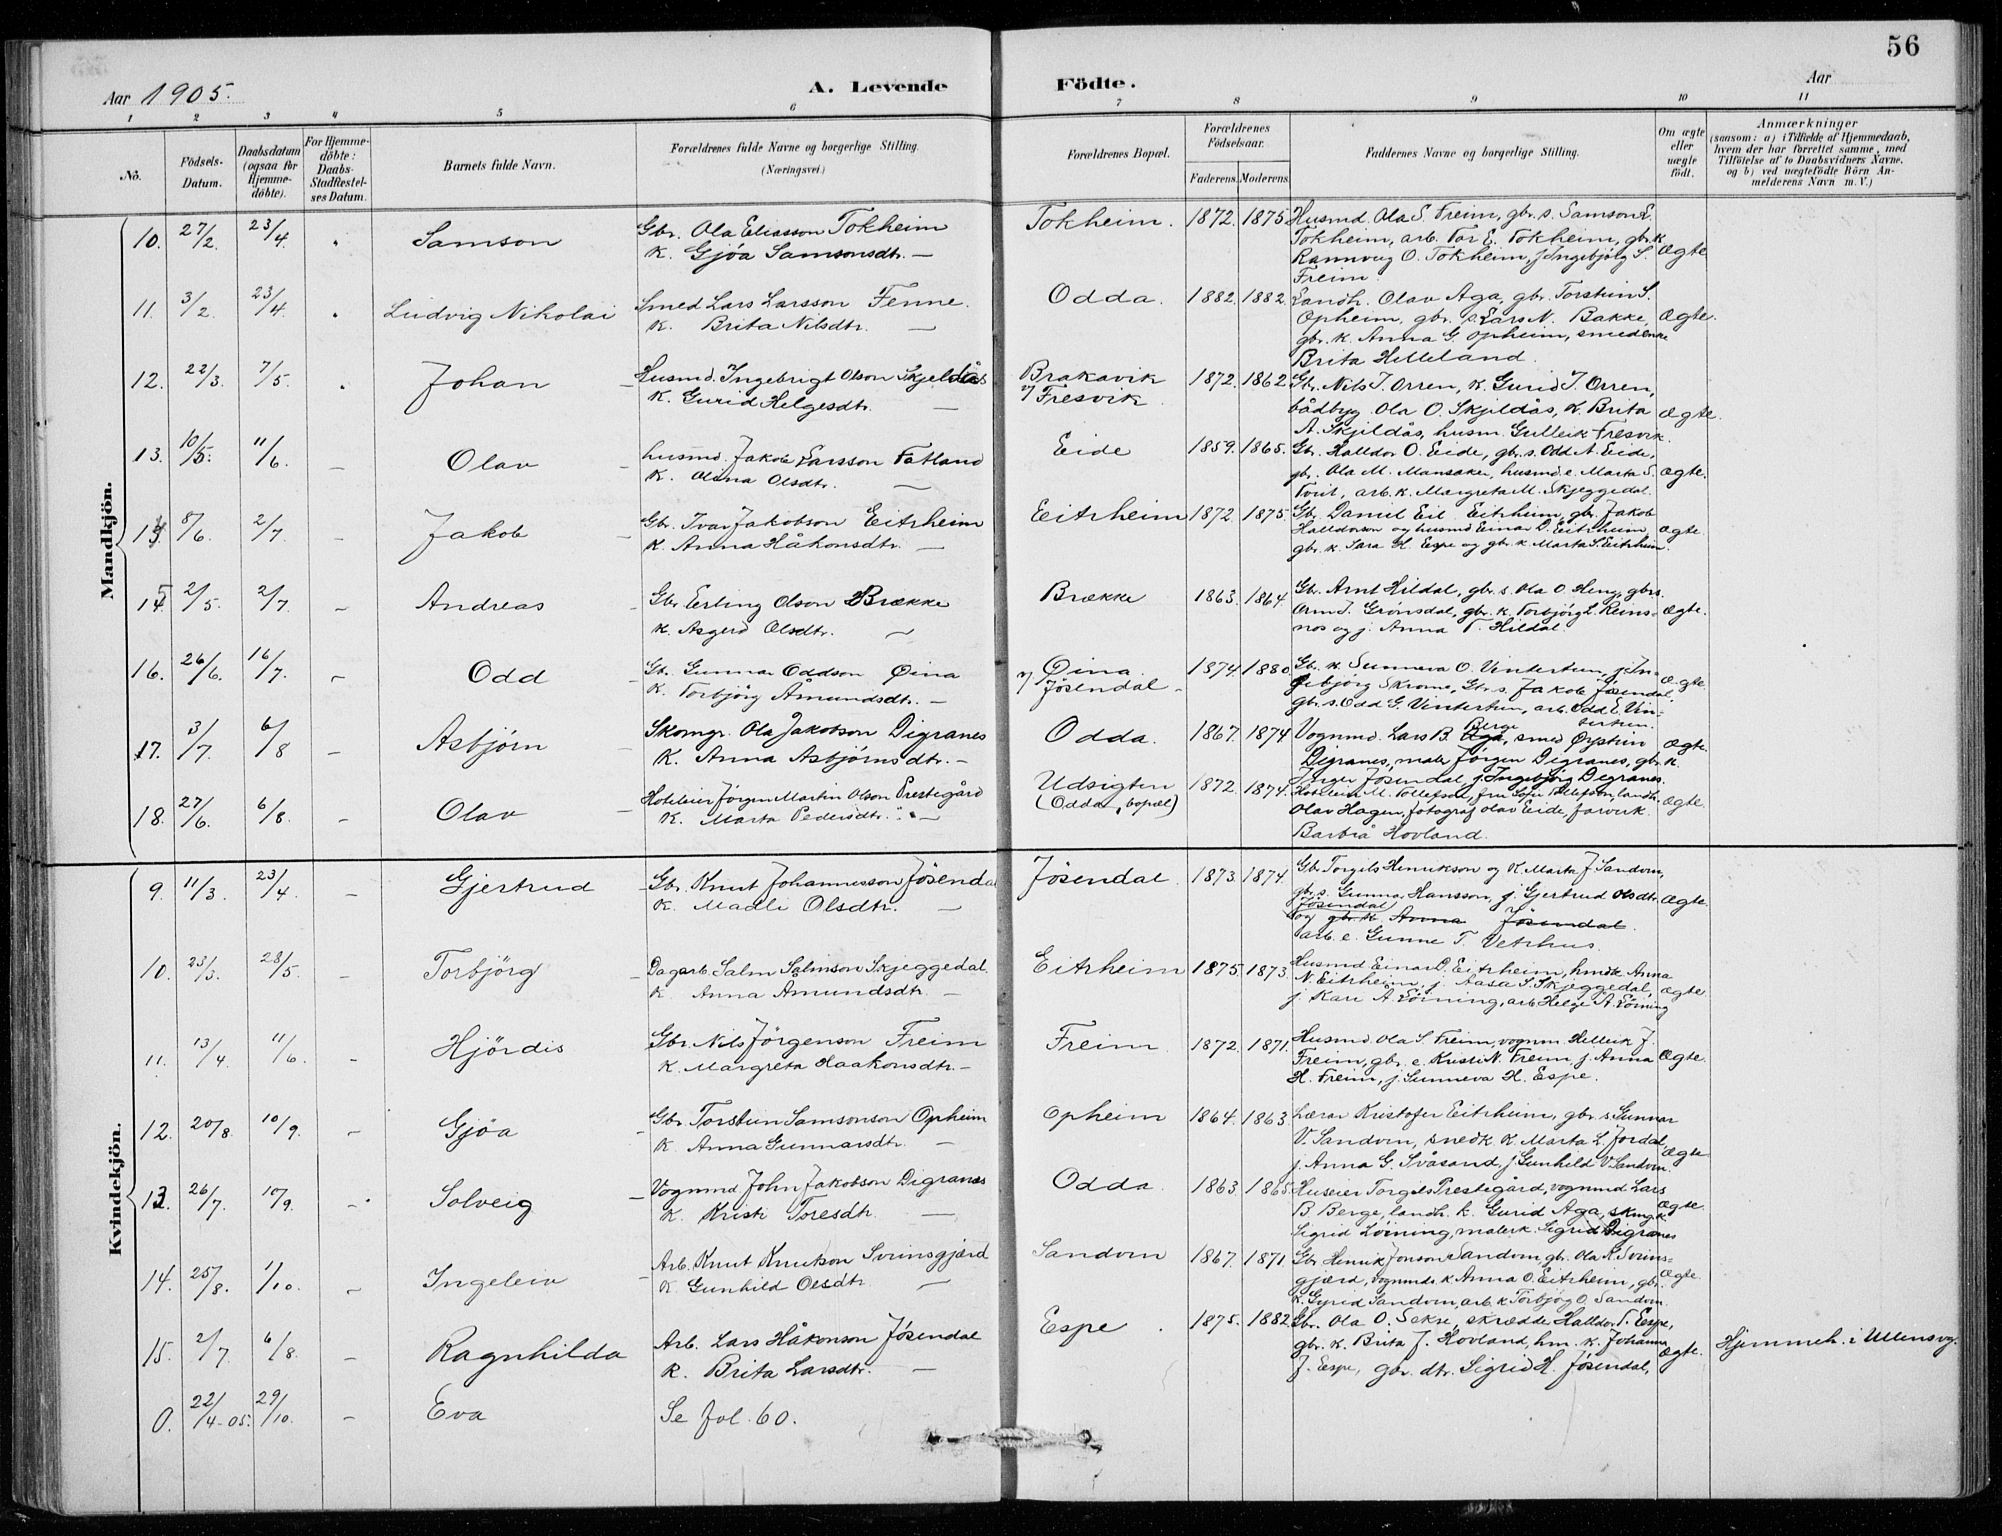 56
Aar 1905.
A. Levende Födte.
Aar
1 2 3 4 5 6 7 8 9 10 11
No.
Födsels-Datum.
Daabsdatum (ogsaa for Hjemme-döbte).
For Hjemme-döbte: Daabs-Stadfæstel-ses Datum.
Barnets fulde Navn.
Forældrenes fulde Navne og borgerlige Stilling.
(Næringsvei.)
Forældrenes Bopæl.
Forældrenes Födselsaar.
Faderens. Moderens.
Faddernes Navne og borgerlige Stilling.
Om ægte eller uægte födt.
Anmærkninger
(saasom: a) i Tilfælde af Hjemmedaab, hvem der har forrettet samme, med Tilföielse af to Daabsvidners Navne, og b) ved uægtefödte Börn An-melderens Navn m. V.)
Mandkjön.
10. 27/2 23/4. Samson
Gbr. Ola Eliasson Tokheim
K. Gjøa Samsonsdtr. —
Tokheim. 1872. 1875
Husmd. Ola S. Freim, gbr. s. Samson E.
Tokheim, arb. Tor E. Tokheim, gbr. k.
Rannveig O. Tokheim, j. Ingebjölg S.
Freim. Ægte
11. 3/2. 23/4. Ludvig Nikolai
Smed Lars Larsson Fenne.
K. Brita Nilsdtr. —
Odda. 1882. 1882.
Landh. Olav Aga, gbr. Torstein S.
Opheim, gbr. s. Lars N. Bakke,
gbr. k. Anna G. Opheim, smedenke
Brita Helleland. Ægte.
12. 22/3. 7/5. Johan
Husmd. Ingebrigt Olson Skjeldås
K. Gurid Helgesdtr. —
Brakavik
v/ Fresvik 1872. 1862
Gbr. Nils T. Orren, K. Gurid T. Orren,
bådbyg. Ola O. Skjildås, K. Brita
A. Skjildås, husm. Gulleik Fresvik. Ægte.
13. 10/5. 11/6. Olav
husmd. Jakob Larsson Fatland
K. Anna Olsdtr. —
Eide 1859. 1865.
Gbr. Halldor O. Eide, gbr. s. Odd A. Eide,
gbr. Ola M. Mansaker, husmd. e. Marta S.
Tveit, arb. k. Margreta M. Skjeggedal. Ægte.
14. 8/6. 2/7. Jakob
Gbr. Ivar Jakobson Eitrheim
K. Anna Håkonsdtr. —
Eitrheim 1872. 1875.
Gbr. Daniel Eil. Eitrheim, gbr. Jakob
Halldorson og husmd. Einar D. Eitrheim,
gbr. k. Sara H. Espe og gbr. k. Marta S. Eitrheim. Ægte.
15. 2/5. 2/7 Andreas
Gbr. Erling Olson Brække
K. Asgerd Olsdtr. —
Brække 1863. 1864
Gbr. Arnt Hildal, gbr. s. Ola O. Heng, gbr. s.
Orm J. Grönsdal, gbr. k. Torbjörg L. Reins-
nos og j. Anna T. Hildal. Ægte.
16. 26/6. 16/7. Odd
Gbr. Gunnar Oddson Öina
K. Torbjörg Åmundsdtr. —
Öina
v/ Jösendal 1874. 1880.
Gbr. k. Sunneva O. Vintertun, j. In-
gebjörg Skromo, Gbr. s. Jakob Jösendal,
gbr. s. Odd G. Vintertun, arb. Odd E. Vin-
tertun. Ægte.
17. 3/7 6/8 Asbjörn
Skomgr. Ola Jakobson Digranes
K. Anna Asbjörnsdtr. —
Odda. 1867. 1874
Vognmd. Lars B. Berge, smed Öystein
Digranes, maler Jörgen Digranes, gbr. k.
Inger Jösendal, j. Ingebjörg Digranes. Ægte.
18. 27/6. 6/8. Olav
Hoteleier Jörgen Martin Olson Prestegård
K. Marta Pedersdtr. —
Udsigten
(Odda, bopæl) 1872. 1874.
Hoteleier M. Tollefsen, fru Sofie Tollefsen, landh.
Olav Hagen, fotograf Olav Eide, farverk.
Barbrå Hovland. Ægte.
Kvindekjön.
9. 11/3. 23/4. Gjertrud
Gbr. Knut Johannesson Jösendal
K. Madli Olsdtr. —
Jösendal 1873. 1874.
Gbr. Torgils Henrikson og K. Marta J. Sandvin,
gbr. s. Gunnar Hansson, j. Gjertrud Olsdtr.
Jösendal
og gbr. k. Anna Jösendal.
arb. e. Gunne T. Vetrhus. Ægte.
10. 23/3. 28/5. Torbjörg
Dagarb. Salm. Salmson Skjeggedal
K. Anna Amundsdtr. —
Eitrheim 1875. 1873.
Husmd. Einar D. Eitrheim, hmdk. Anna
N. Eitrheim, j. Aasa S. Skjeggedal,
j. Kari A. Löining, arb. Helge A. Löining Ægte
11. 13/4. 11/6. Hjördis
Gbr. Nils Jörgenson Freim
K. Margreta Haakonsdtr. —
Freim. 1872. 1871.
Husmd. Ola S. Freim, vognm. Helleik J.
Freim, gbr. e. Kristi N. Freim, j. Anna
H. Freim, j. Sunneva H. Espe. Ægte.
12. 20/8. 10/9. Gjøa
Gbr. Torstein Samsonson Opheim
K. Anna Gunnarsdtr. —
Opheim 1864. 1863.
Lærar Kristofer Eitrheim, gbr. s. Gunnar
V. Sandvin, snedk. K. Marta L. Jordal,
j. Anna G. Svåsand, j. Gunhild V. Sandvin. Ægte
13. 26/7. 10/9. Solveig
Vognmd. John Jakobson Digranes
K. Kristi Toresdtr. —
Odda. 1863. 1865.
Huseier Torgils Prestegård, vognmd. Lars
B. Berge, landh. k. Gurid Aga, skmg. k.
Sigrid Löining, malerk. Sigrid Digranes Ægte.
14. 25/8. 1/10. Ingeleiv
Arb. Knut Knutson Sveinsgjærd
K. Gunhild Olsdtr. —
Sandvin 1867. 1871.
Gbr. Henrik Jonson Sandvin, gbr. Ola K. Sveins-
gjærd, vognmds. k. Anna O. Eitrheim, gbr.
k. Gyrid Sandvin, arb. k. Torbjörg O. Sandvin. Ægte.
15. 2/7. 6/8. Ragnhilda
Arb. Lars Håkonson Jösendal
K. Brita Larsdtr. —
Espe. 1875. 1882.
Gbr. Ola O. Sekse, skrædder Halldor T. Espe,
gbr. k. Brita J. Hovland, hm. k. Johanna
J. Espe, gbr. dtr. Sigrid H. Jösendal, Ægte.
Hjemmeh. i Ullensvg.
0. 22/4-05. 29/10. Eva
Se fol. 60.